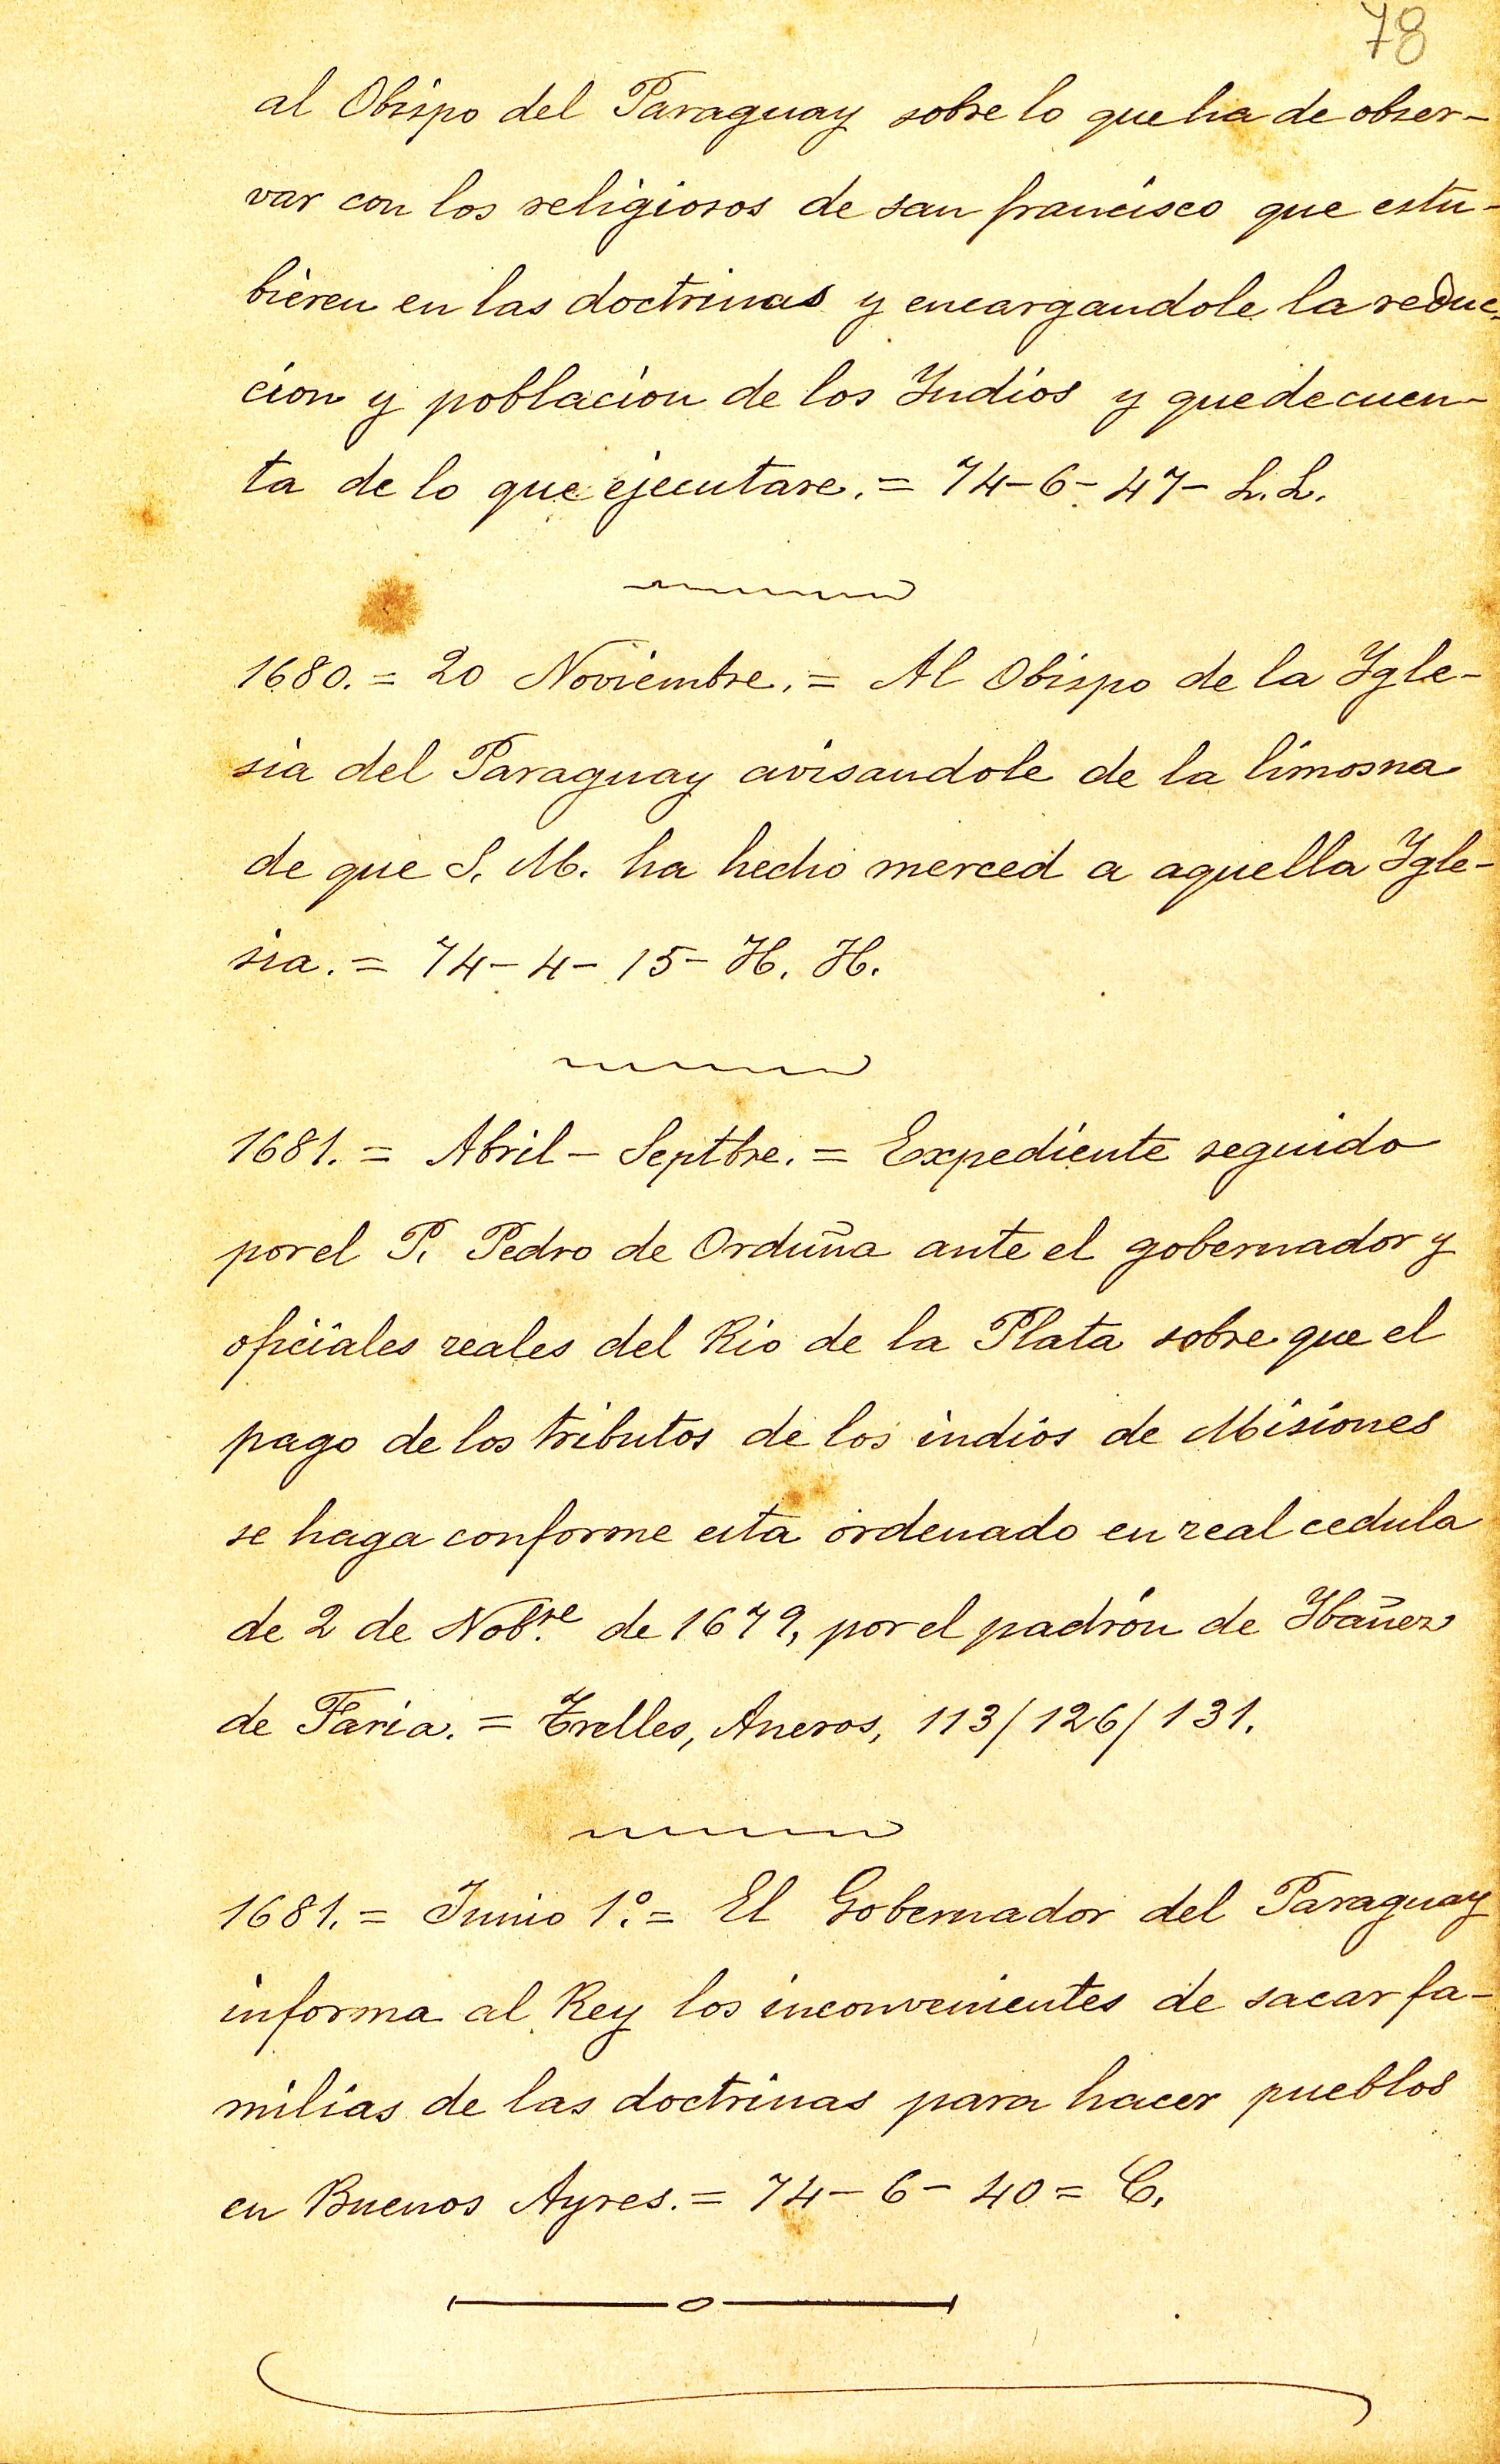 78
al Obispo del Paraguay sobre lo que ha de obser-
var con los religiosos de san francisco que estu-
bieren en las doctrinas y encargandole la reduc-
cion y poblacion de los Yndios y que de cuen-
ta de lo que ejecutare. = 74-6-47- L. L.
1680. = 20 Noviembre. = Al Obispo de la Ygle-
sia del Paraguay avisandole de la limosna
de que S. M. ha hecho merced a aquella Ygle-
sia. = 74-4-15- H. H.
1681. = Abril - Septbre. = Expediente seguido
por el P. Pedro de Orduña ante el gobernador y
oficiales reales del Rio de la Plata sobre que el
pago de los tributos de los indios de Misiones
se haga conforme esta ordenado en real cedula
de 2 de Nobre de 1679, por el padrón de Ybañez
de Faria. = Trelles, Aneros, 113/126/131.
1681. = Junio 1º. = El Gobernador del Paraguay
informa al Rey los inconvenientes de sacar fa-
milias de las doctrinas para hacer pueblos
en Buenos Ayres. = 74-6-40 = C.